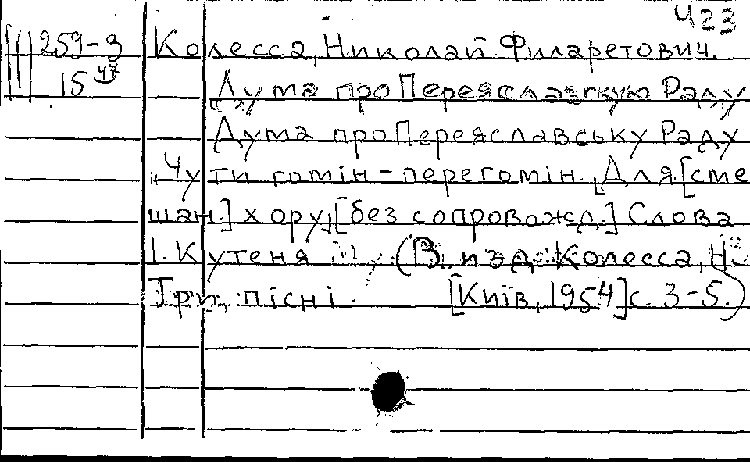 423
Ш 259-3 Колесса, Николай Филаретович.
15 47 Дума про Переяславскую Раду
Дума про Переяславську Раду
"Чути гомін-перегомін. Для [сме
шан.] хору, [без сопровожд.] Слова
І. Кутеня (В изд. Колесса, Н.
Три пісні. [Київ, 1954] с. 3-5.)